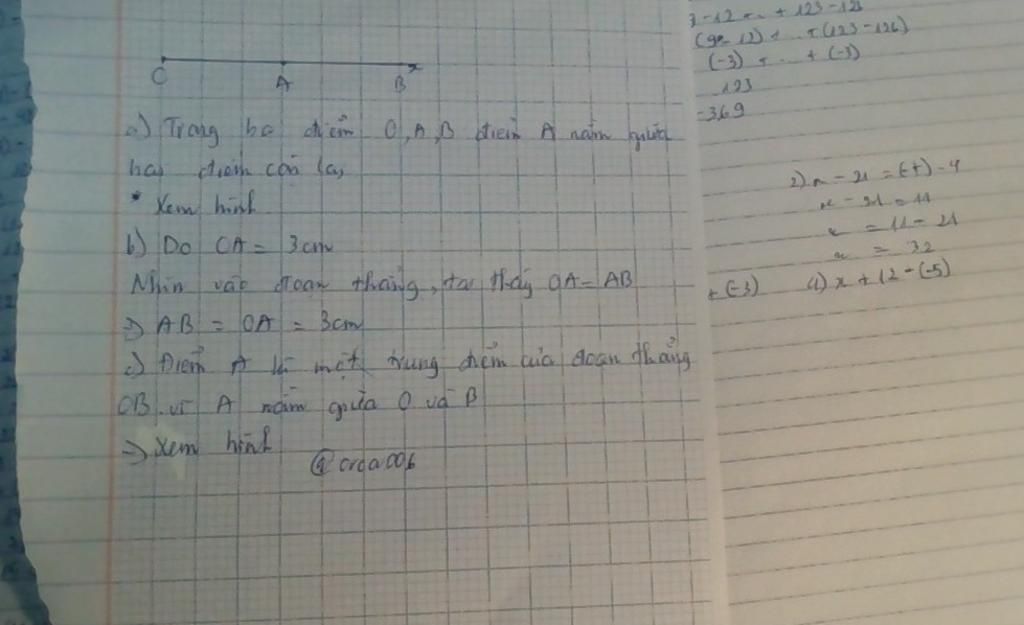 O A B
a) Trong ba điểm O,A,B điểm A nằm giữa
hai điểm còn lại
* Xem hình
b) Do OA = 3cm
Nhìn vào đoạn thẳng, ta thấy OA = AB
=> AB = OA = 3cm
c) Điểm A là một trung điểm của đoạn thẳng
OB vì A nằm giữa O và B
=> Xem hình
@crda006
+ 123 - 126
+ (123 - 126)
(-3) + .. + (-3)
123
-369
+ (-3)
x - 21 = 11
x = 11 - 21
x = 32
x + 12 - (-5)